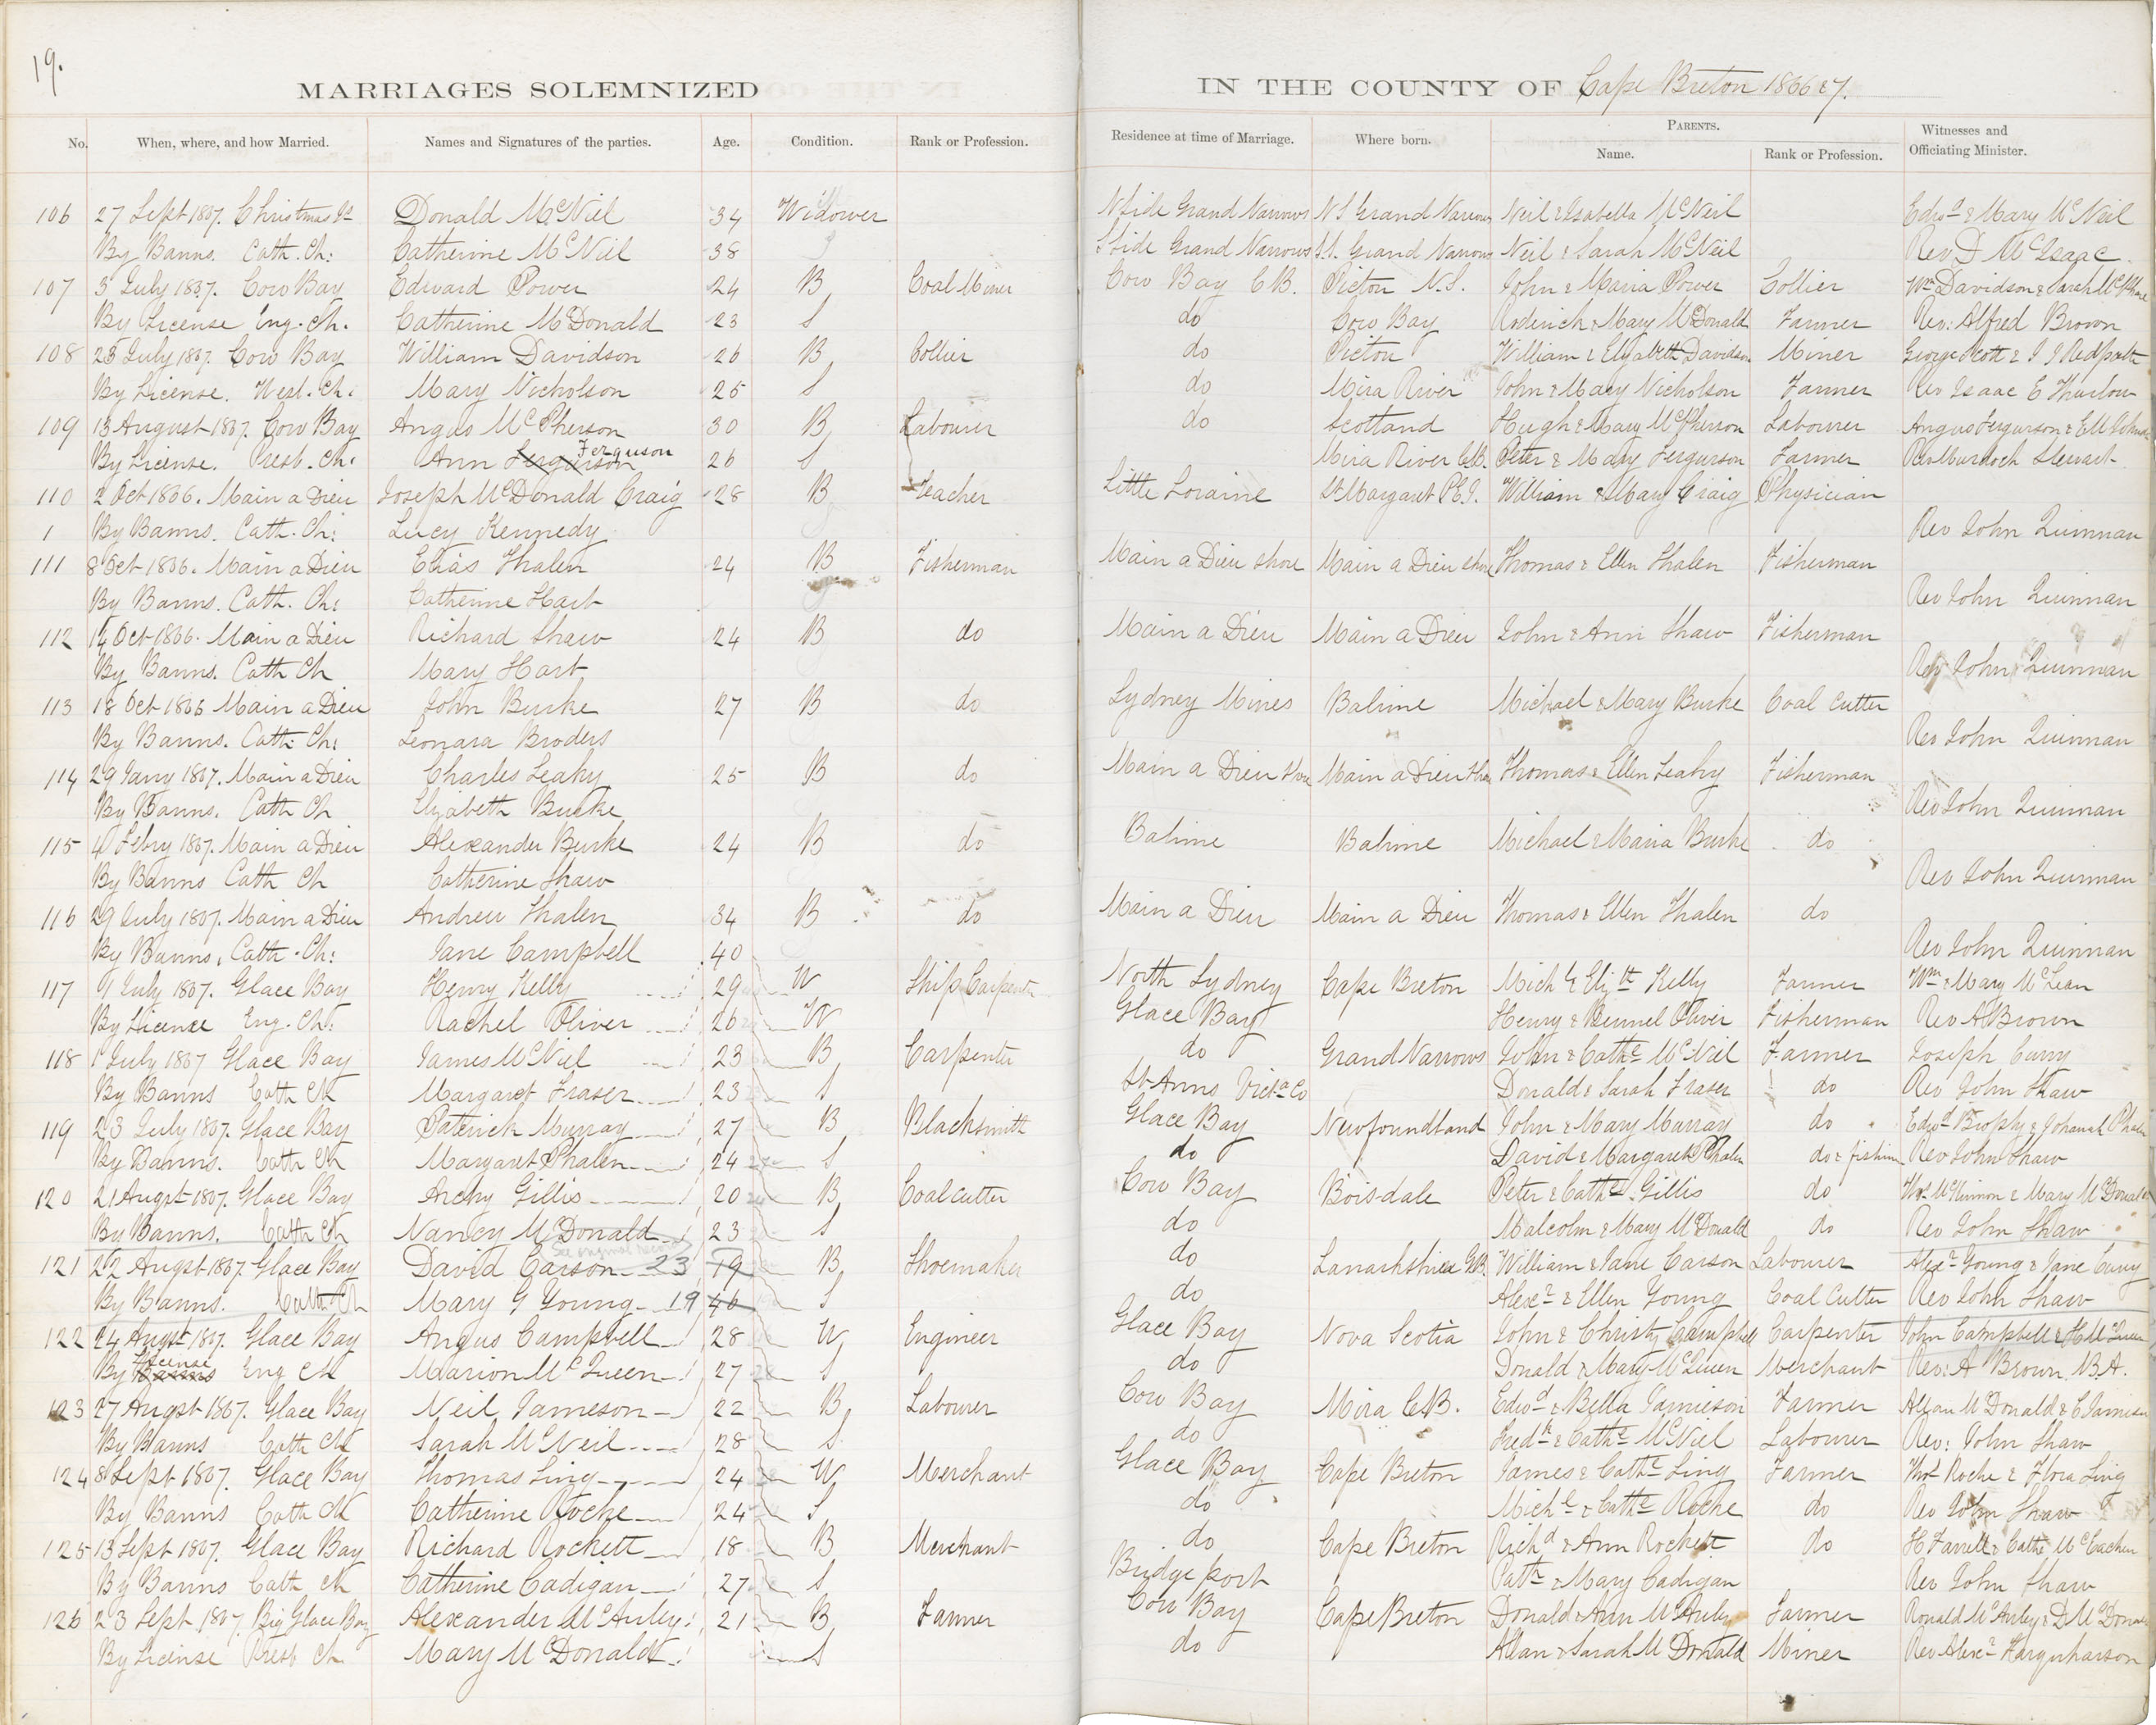 19.
MARRIAGES SOLEMNIZED IN THE COUNTY OF Cape Breton 1866 & 7.
No. When, where, and how Married. Names and Signatures of the parties. Age. Condition. Rank or Profession. Residence at time of Marriage. Where born. PARENTS. Name. Rank or Profession. Witnesses and Officiating Minister.
106 27 Sept 1867. Christmas Is Donald McNiel 34 Widower N Side Grand Narrows N S. Grand Narrows Neil & Isabella McNeil Edwd & Mary McNeil
By Banns. Cath. Ch: Catherine McNiel 38 S Side Grand Narrows S. Grand Narrows Neil & Sarah McNeil Rev D McIsaac
107 5 July 1867. Cow Bay Edward Power 24 B Coal Miner Cow Bay C.B. Picton N.S. John & Maria Power Collier Wm Davidson & Sarah
By License Eng. Ch. Catherine McDonald 23 S do Cow Bay Roderick & Mary McDonald Farmer Rev: Alfred Brown
108 25 July 1867. Cow Bay William Davidson 26 B Collier do Picton William & Elizabeth Davidson Miner George Scott & I J Redpath
By License. Wesl. Ch: Mary Nicholson 25 S do Mira River John & Mary Nicholson Farmer Rev Isaac E Thurlow
109 13 August 1867. Cow Bay Angus McPherson 30 B Labourer do Scotland Hugh & Mary McPherson Labourer Angus Fergurson &
By License. Presb. Ch: Ann Fergurson Ferguson 26 S Mira River C.B. Peter & Mary Fergurson Farmer Rev Murdoch Stewart
110 2 Oct 1866. Main a Dieu Joseph McDonald Craig 28 B Teacher Little Loraine St Margaret P.E.I. William & Mary Craig Physician
1 By Banns. Cath. Ch: Lucy Kennedy Rev John Quinnan
111 8 Oct 1866. Main a Dieu Elias Thalen 24 B Fisherman Main a Dieu Shore Main a Dieu Shore Thomas & Ellen Thalen Fisherman
By Banns. Cath. Ch: Catherine Hart Rev John Quinnan
112 14 Oct 1866. Main a Dieu Richard Shaw 24 B do Main a Dieu Main a Dieu John & Ann Shaw Fisherman
By Banns. Cath Ch Mary Hart Rev John Quinnan
113 18 Oct 1866 Main a Dieu John Burke 27 B do Sydney Mines Balime Michael & Mary Burke Coal Cutter
By Banns. Cath: Ch: Leonara Broders Rev John Quinnan
114 29 Jany 1867. Main a Dieu Charles Leahy 25 B do Main a Dieu Shore Main a Dieu Shore Thomas & Ellen Leahy Fisherman
By Banns. Cath Ch Elizabeth Burke Rev John Quinnan
115 4 Febry 1867. Main a Dieu Alexander Burke 24 B do Balime Balime Michael & Maria Burke do
By Banns Cath Ch Catherine Shaw Rev John Quinnan
116 29 July 1867. Main a Dieu Andrew Thalen 34 B do Main a Dieu Main a Dieu Thomas & Ellen Thalen do
By Banns. Cath. Ch: Jane Campbell 40 Rev John Quinnan
117 9 July 1867. Glace Bay Henry Kelly 29 W Ship Carpenter North Sydney Cape Breton Mich & Elizth Kelly Farmer Wm & Mary McLean
By License Eng. Ch: Rachel Oliver 26 W Glace Bay Henry & Bennel Oliver Fisherman Rev A Brown
118 1 July 1867 Glace Bay James McNiel 23 B Carpenter do Grand Narrows John & Cathe McNiel Farmer Joseph Curry
By Banns Cath Ch Margaret Fraser 23 S St Anns Victa Co Donald & Sarah Fraser do Rev John Shaw
119 23 July 1867. Glace Bay Patrick Murray 27 B Blacksmith Glace Bay Newfoundland John & Mary Murray do Edwd Brophy & Johanah Phalen
By Banns. Cath Ch Margaret Phalen 24 S do David & Margaret Phalen do & fishing Rev John Shaw
120 21 Augst 1867. Glace Bay Archy Gillis 20 B Coal cutter Cow Bay Boisdale Peter & Cathe Gillis do Thos McKinnon & Mary McDonald
By Banns. Cath Ch Nancy McDonald 23 S do Malcolm & Mary McDonald do Rev John Shaw
See original record
121 22 Augst 1867. Glace Bay David Carson 23 19 B Shoemaker do Lanarkshire G.B. William & Jane Carson Labourer Alexr Young & Jane Curry
By Banns. Cath Ch Mary G Young 19 46 S do Alexr & Ellen Young Coal Cutter Rev John Shaw
122 24 Augst 1867. Glace Bay Angus Campbell 28 W Engineer Glace Bay Nova Scotia John & Christy Campbell Carpenter John Campbell & H McQueen
By Banns License Eng Ch Marion McQueen 27 S do Donald & Mary McQueen Merchant Rev: A Brown B.A.
123 27 Augst 1867. Glace Bay Neil Jameson 22 B Labourer Cow Bay Mira C.B. Edwd & Bella Jamieson Farmer Allan McDonald & C Jamieson
By Banns Cath Ch Sarah McNeil 28 S do Fredk & Cathe McNiel Labourer Rev: John Shaw
124 8 Sept 1867. Glace Bay Thomas Ling 24 W Merchant Glace Bay Cape Breton James & Cathe Ling Farmer Thos Roche & Flora Ling
By Banns Cath Ch Catherine Roche 24 S do Michl & Cathe Roche do Rev John Shaw
125 13 Sept 1867. Glace Bay Richard Rockett 18 B Merchant do Cape Breton Richd & Ann Rockett do H Farrell & Cathe McEachen
By Banns Cath Ch Catherine Cadigan 27 S Bridgeport Patk & Mary Cadigan Rev John Shaw
126 23 Sept 1867. Big Glace Bay Alexander McAuley 21 B Farmer Cow Bay Cape Breton Donald & Ann McAuley Farmer Ronald McAuley & D McDonald
By License Presb Ch. Mary McDonald S do Allan & Sarah McDonald Miner Rev Alexr Farquharson